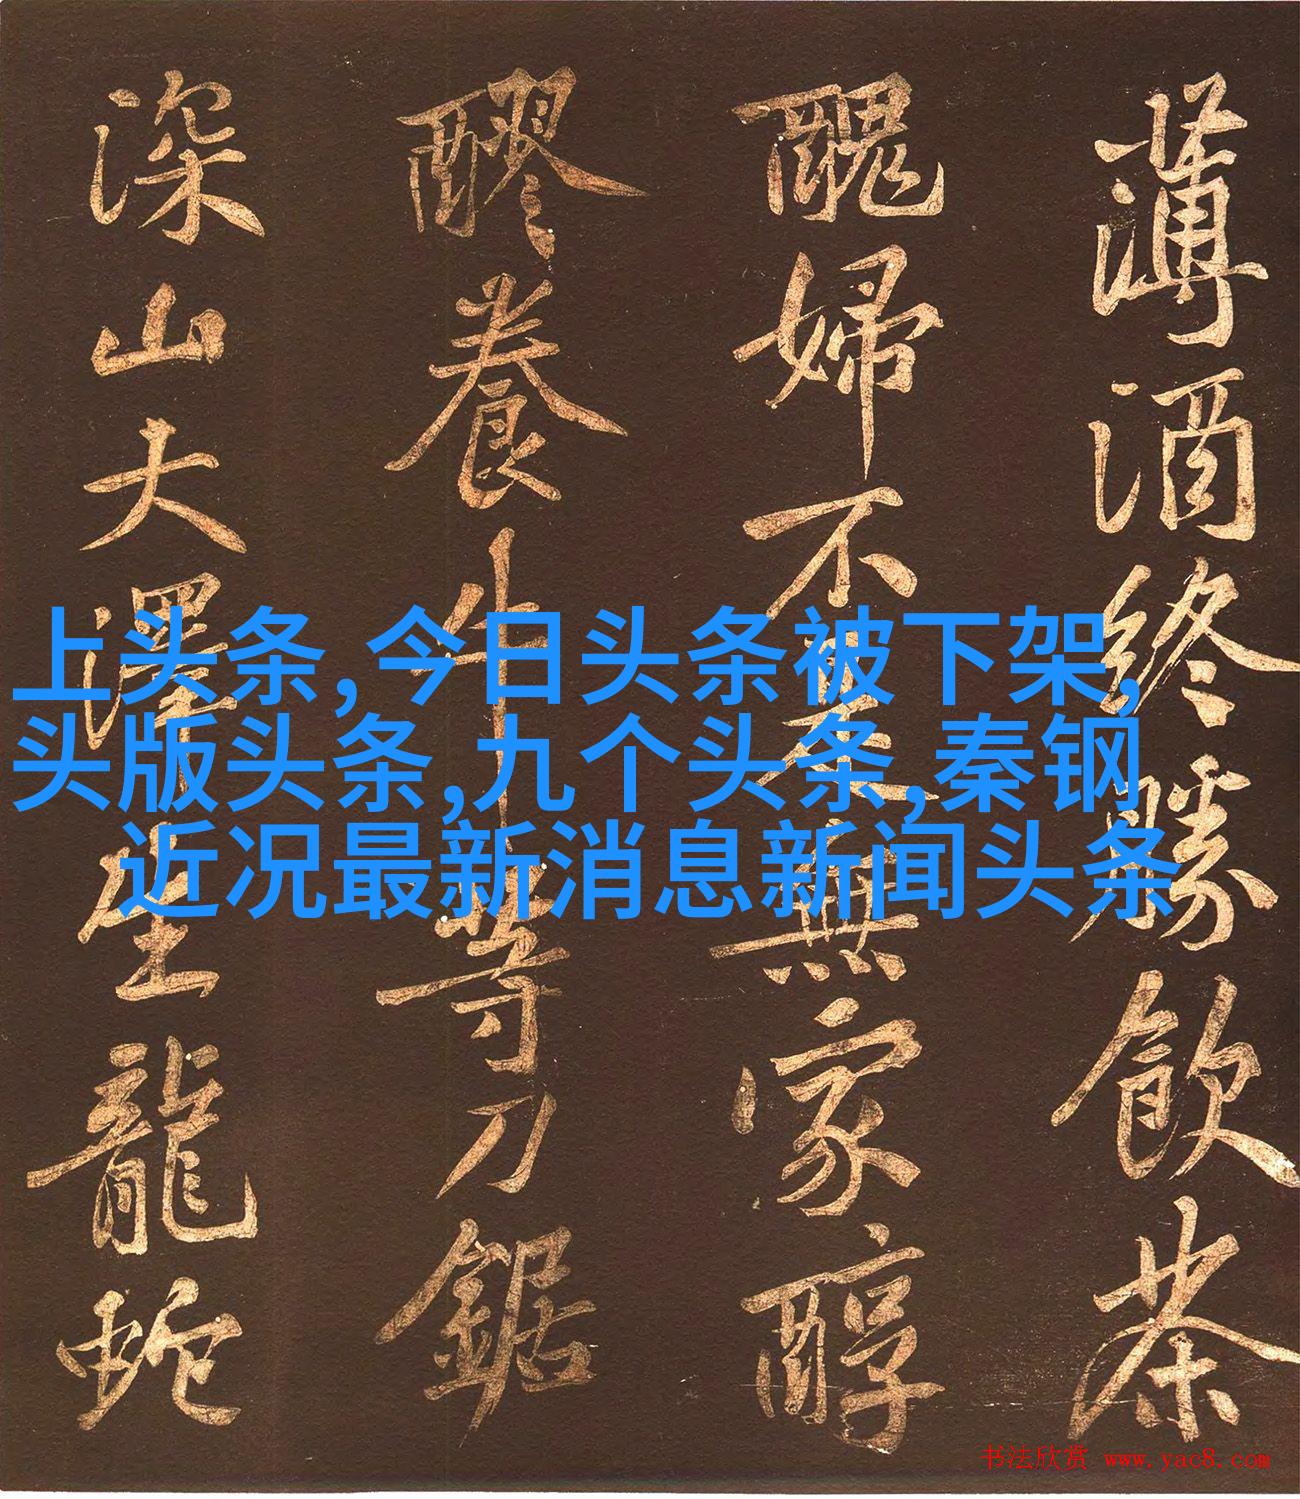 薄酒終勝飲茶
醜婦不是無家醇
醪養牛等刀鋸
深山大澤生龍蛇
上头条,今日头条被下架,
头版头条,九个头条,秦钢
近况最新消息新闻头条
书法欣赏 www.yac8.com